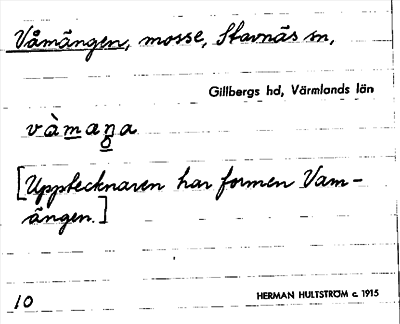 Våmängen, mosse, Stavnäs sn,
Gillbergs hd, Värmlands län
vàmaŋ̥a
[Upptecknaren har formen Vam-
ängen.]
10
HERMAN HULTSTRÖM c. 1915